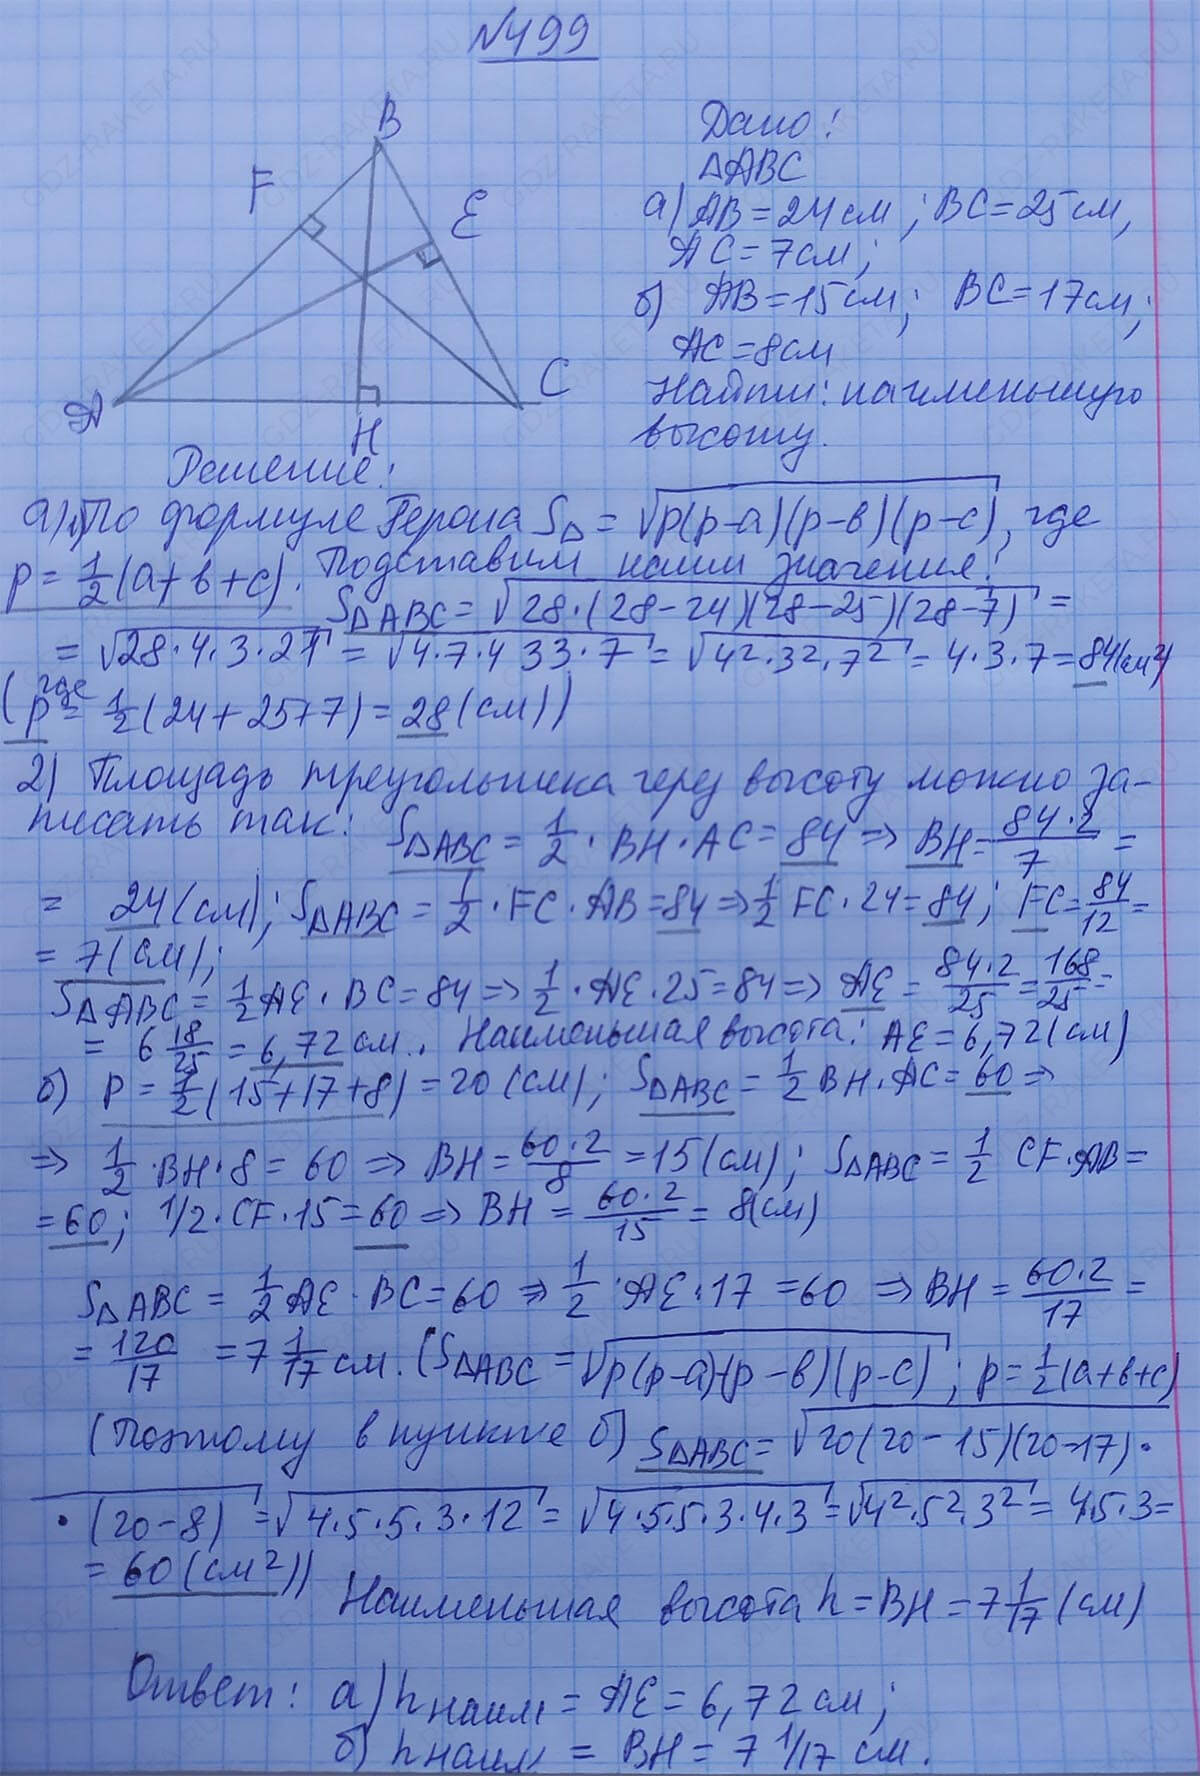 №499
B
F
E
A
H
C
Дано:
△ABC
а) AB = 24 см; BC = 25 см,
AC = 7 см;
б) AB = 15 см; BC = 17 см;
AC = 8 см
Найти: наименьшую
высоту.
Решение:
а) 1) По формуле Герона S△ = √p(p-a)(p-в)(p-c), где
p = 1/2(a+в+c). Подставим наши значения:
S△ABC = √28·(28-24)(28-25)(28-7) =
= √28·4·3·21 = √4·7·4·3·3·7 = √4²·3²·7² = 4·3·7 = 84(см²)
(где p = 1/2(24+25+7) = 28(см))
2) Площадь треугольника через высоту можно за-
писать так: S△ABC = 1/2 · BH · AC = 84 => BH = 84·2/7 =
= 24(см); S△ABC = 1/2 · FC · AB = 84 => 1/2 FC · 24 = 84; FC = 84/12 =
= 7(см);
S△ABC = 1/2 AE · BC = 84 => 1/2 · AE · 25 = 84 => AE = 84·2/25 = 168/25 =
= 6 18/25 = 6,72 см. Наименьшая высота: AE = 6,72(см)
б) P = 1/2(15+17+8) = 20(см); S△ABC = 1/2 BH · AC = 60 =>
=> 1/2 · BH · 8 = 60 => BH = 60·2/8 = 15(см); S△ABC = 1/2 CF · AB =
= 60; 1/2 · CF · 15 = 60 => BH = 60·2/15 = 8(см)
S△ABC = 1/2 AE · BC = 60 => 1/2 · AE · 17 = 60 => BH = 60·2/17 =
= 120/17 = 7 1/17 см. (S△ABC = √p(p-a)(p-в)(p-c); p = 1/2(a+в+c)
(Поэтому в пункте б) S△ABC = √20(20-15)(20-17)·
·(20-8) = √4·5·5·3·12 = √4·5·5·3·4·3 = √4²·5²·3² = 4·5·3 =
= 60(см²))
Наименьшая высота h = BH = 7 1/17 (см)
Ответ: а) hнаим = AE = 6,72 см;
б) hнаим = BH = 7 1/17 см.